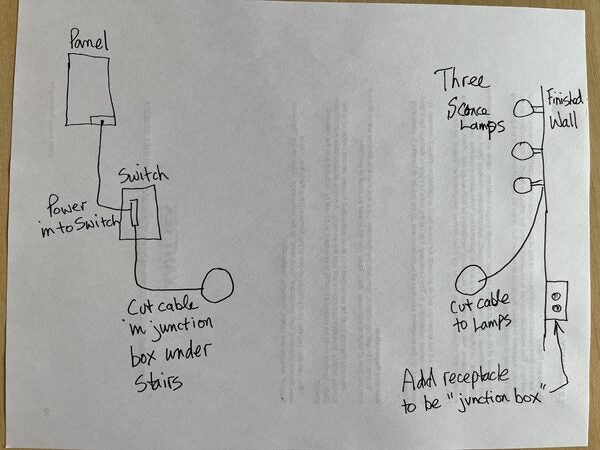 Panel
Switch
Power
in to Switch
Cut cable
in junction
box under
Stairs
Three
Sconce
Lamps
Finished
Wall
Cut cable
to Lamps
Add receptacle
to be "junction box"